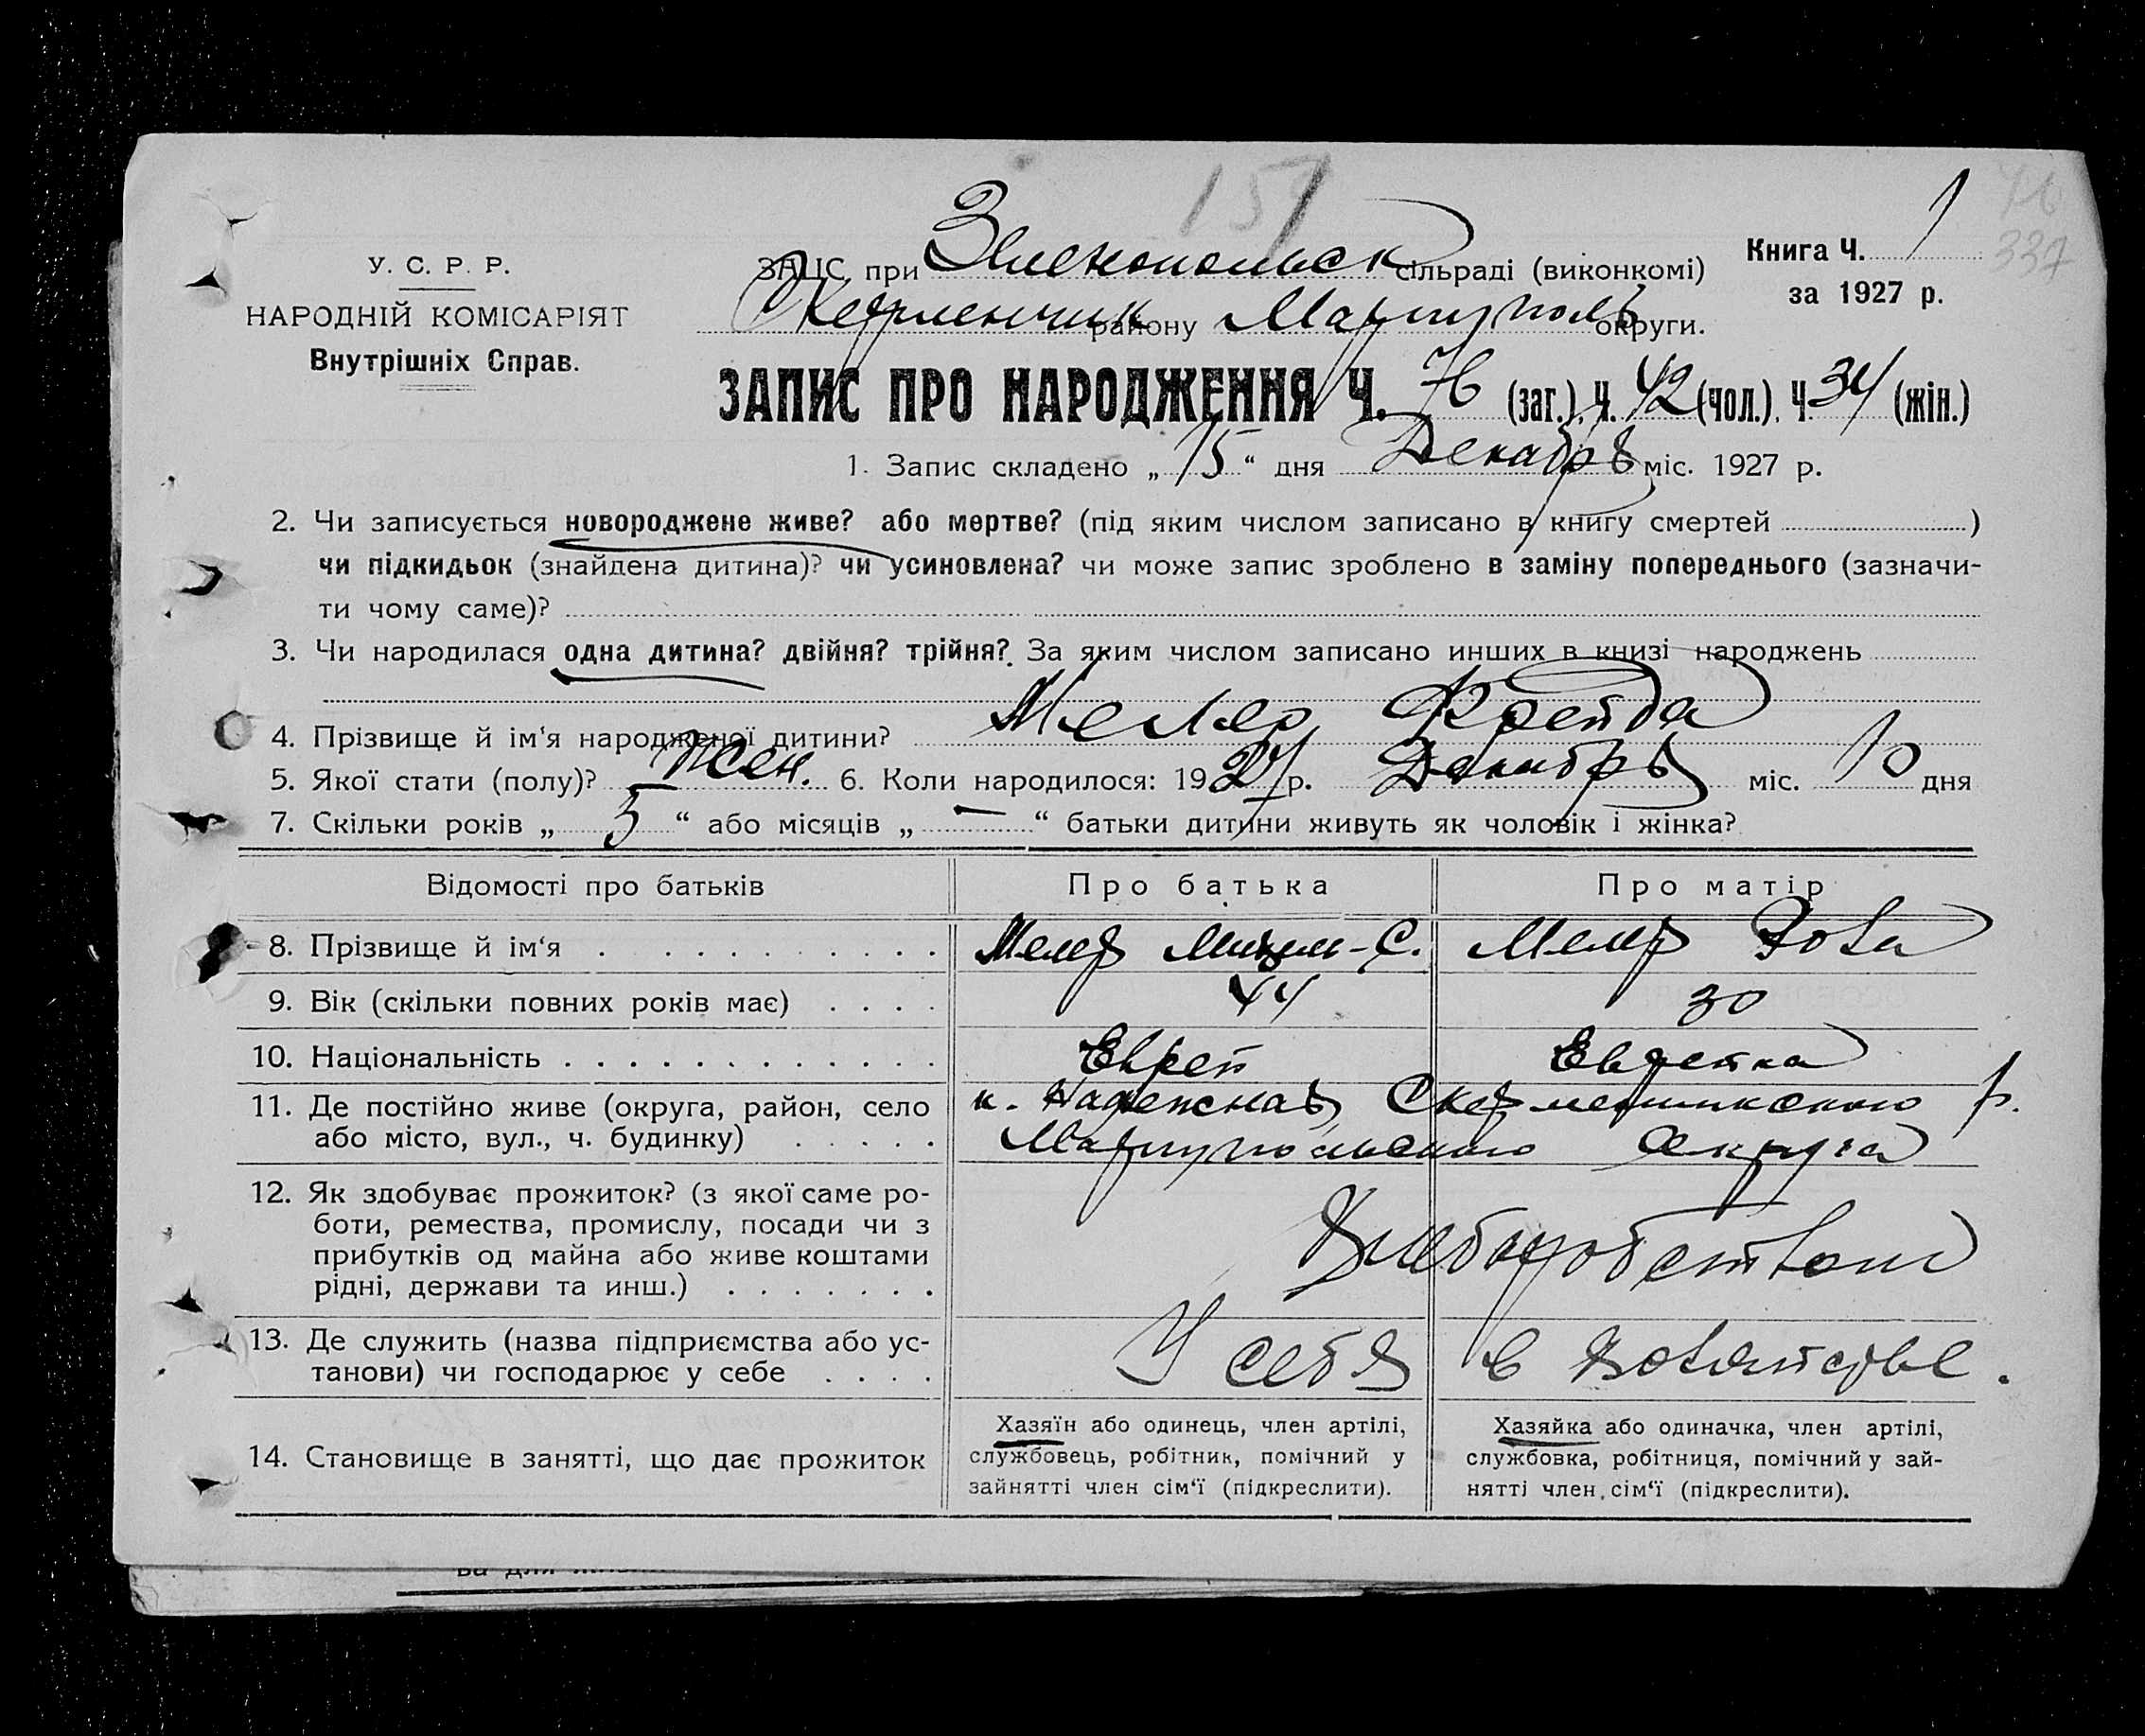 151
76
337
У. С. Р. Р.
НАРОДНІЙ КОМІСАРІЯТ
Внутрішніх Справ.
ЗАЦС при Зеленопольск сільраді (виконкомі)
Книга Ч. 1
за 1927 р.
району Мариуполь округи.
ЗАПИС ПРО НАРОДЖЕННЯ Ч. 76 (заг.), Ч. 42 (чол.), Ч. 34 (жін.)
1. Запис складено „ 15 “ дня Декабря міс. 1927 р.
2. Чи записується новороджене живе? або мертве? (під яким числом записано в книгу смертей )
чи підкидьок (знайдена дитина)? чи усиновлена? чи може запис зроблено в заміну попереднього (зазначи-
ти чому саме)?
3. Чи народилася одна дитина? двійня? трійня? За яким числом записано инших в книзі народжень
4. Прізвище й ім‘я народженої дитини? Мелер Фрейда
5. Якої стати (полу)? Жен. 6. Коли народилося: 1927 р. Декабря міс. 10 дня
7. Скільки років „ 5 “ або місяців „ — “ батьки дитини живуть як чоловік і жінка?
Відомості про батьків
Про батька
Про матір
8. Прізвище й ім‘я . . . . . . . . . .
Мелер С.
Мелер
9. Вік (скільки повних років має) . . . .
44
30
10. Національність . . . . . . . . . . . .
Еврей
Еврейка
11. Де постійно живе (округа, район, село
або місто, вул., ч. будинку) . . . . .
к. Надежная, р.
Мариупольского Округа
12. Як здобуває прожиток? (з якої саме ро-
боти, ремества, промислу, посади чи з
прибутків од майна або живе коштами
рідні, держави та инш.) . . . . . . .
Хлеборобством
13. Де служить (назва підприємства або ус-
танови) чи господарює у себе . . . .
У себя в хозяйстве.
14. Становище в занятті, що дає прожиток
Хазяїн або одинець, член артілі,
службовець, робітник, помічний у
зайнятті член сім‘ї (підкреслити).
Хазяйка або одиначка, член артілі,
службовка, робітниця, помічний у зай-
нятті член сім‘ї (підкреслити).